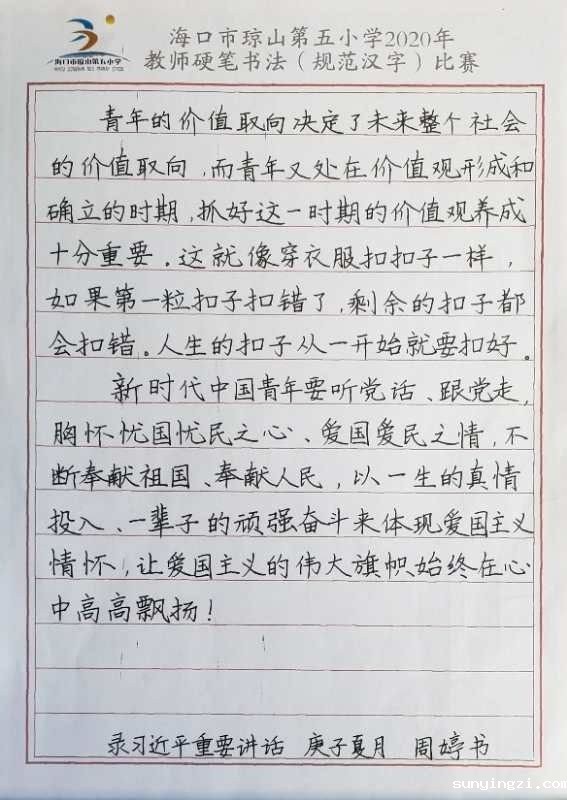 海口市琼山第五小学2020年
教师硬笔书法（规范汉字）比赛
海口市琼山第五小学
青年的价值取向决定了未来整个社会
的价值取向，而青年又处在价值观形成和
确立的时期，抓好这一时期的价值观养成
十分重要。这就像穿衣服扣扣子一样，
如果第一粒扣子扣错了，剩余的扣子都
会扣错。人生的扣子从一开始就要扣好。
新时代中国青年要听党话、跟党走，
胸怀忧国忧民之心、爱国爱民之情，不
断奉献祖国、奉献人民，以一生的真情
投入、一辈子的顽强奋斗来体现爱国主义
情怀，让爱国主义的伟大旗帜始终在心
中高高飘扬！
录习近平重要讲话 庚子夏月 周婷书
sunyingzi.com